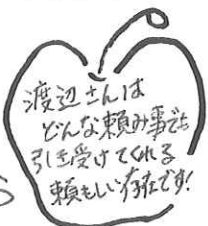 渡辺さんは
どんな頼み事でも
引き受けてくれる
頼もしい存在です!